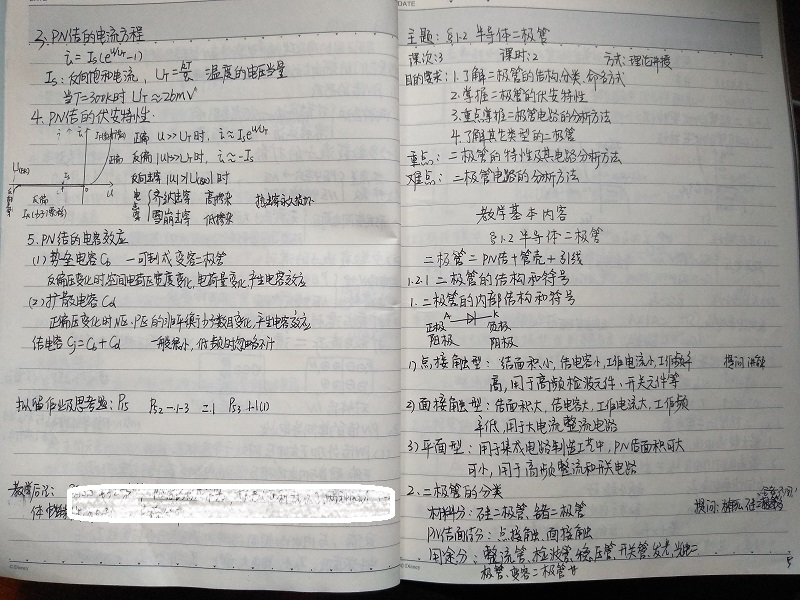 3. PN结的电流方程
i = Is(e^u/UT -1)
Is：反向饱和电流，UT = KT/q 温度的电压当量
当T=300K时 UT≈26mV
4. PN结的伏安特性.
正偏 u>>UT时，i≈Is e^u/UT
反偏 |u|>>UT时，i≈-Is
反向击穿 |u|>|U(BR)|时
电击穿 齐纳击穿 高掺杂
雪崩击穿 低掺杂
U(BR)
反偏
5. PN结的电容效应
(1) 势垒电容Cb 一可制成变容二极管
反偏压变化时,空间电荷区宽度变化,电荷量变化,产生电容效应
(2) 扩散电容Cd
正偏压变化时N区.P区的非平衡少子数目变化,产生电容效应
结电容Cj=Cb+Cd 一般很小,低频时忽略不计
拟留作业及思考题：P15 P52 一 1-3 二.1 P53 1.1(1)
教学后记：
主题：§1.2 半导体二极管
课次:3 课时:2 方式:理论讲授
目的要求：1.了解二极管的结构分类、命名方式
2.掌握二极管的伏安特性
3.重点掌握二极管电路的分析方法
4.了解其它类型的二极管
重点：二极管的特性及其电路分析方法
难点：二极管电路的分析方法
教学基本内容
§1.2 半导体二极管
二极管=PN结+管壳+引线
1.2.1 二极管的结构和符号
1.二极管的内部结构和符号
A K
正极 负极
阳极 阴极
1)点接触型：结面积小,结电容小,工作电流小,工作频率 提问
高,用于高频检波元件、开关元件等
2)面接触型：结面积大,结电容大,工作电流大,工作频
率低,用于大电流整流电路
3)平面型：用于集成电路制造工艺中,PN结面积可大
可小,用于高频整流和开关电路
2.二极管的分类
材料分：硅二极管、锗二极管 提问:
PN结面结分：点接触、面接触
用途分：整流管、检波管、稳压管、开关管、发光、光电二
极管、变容二极管等
5